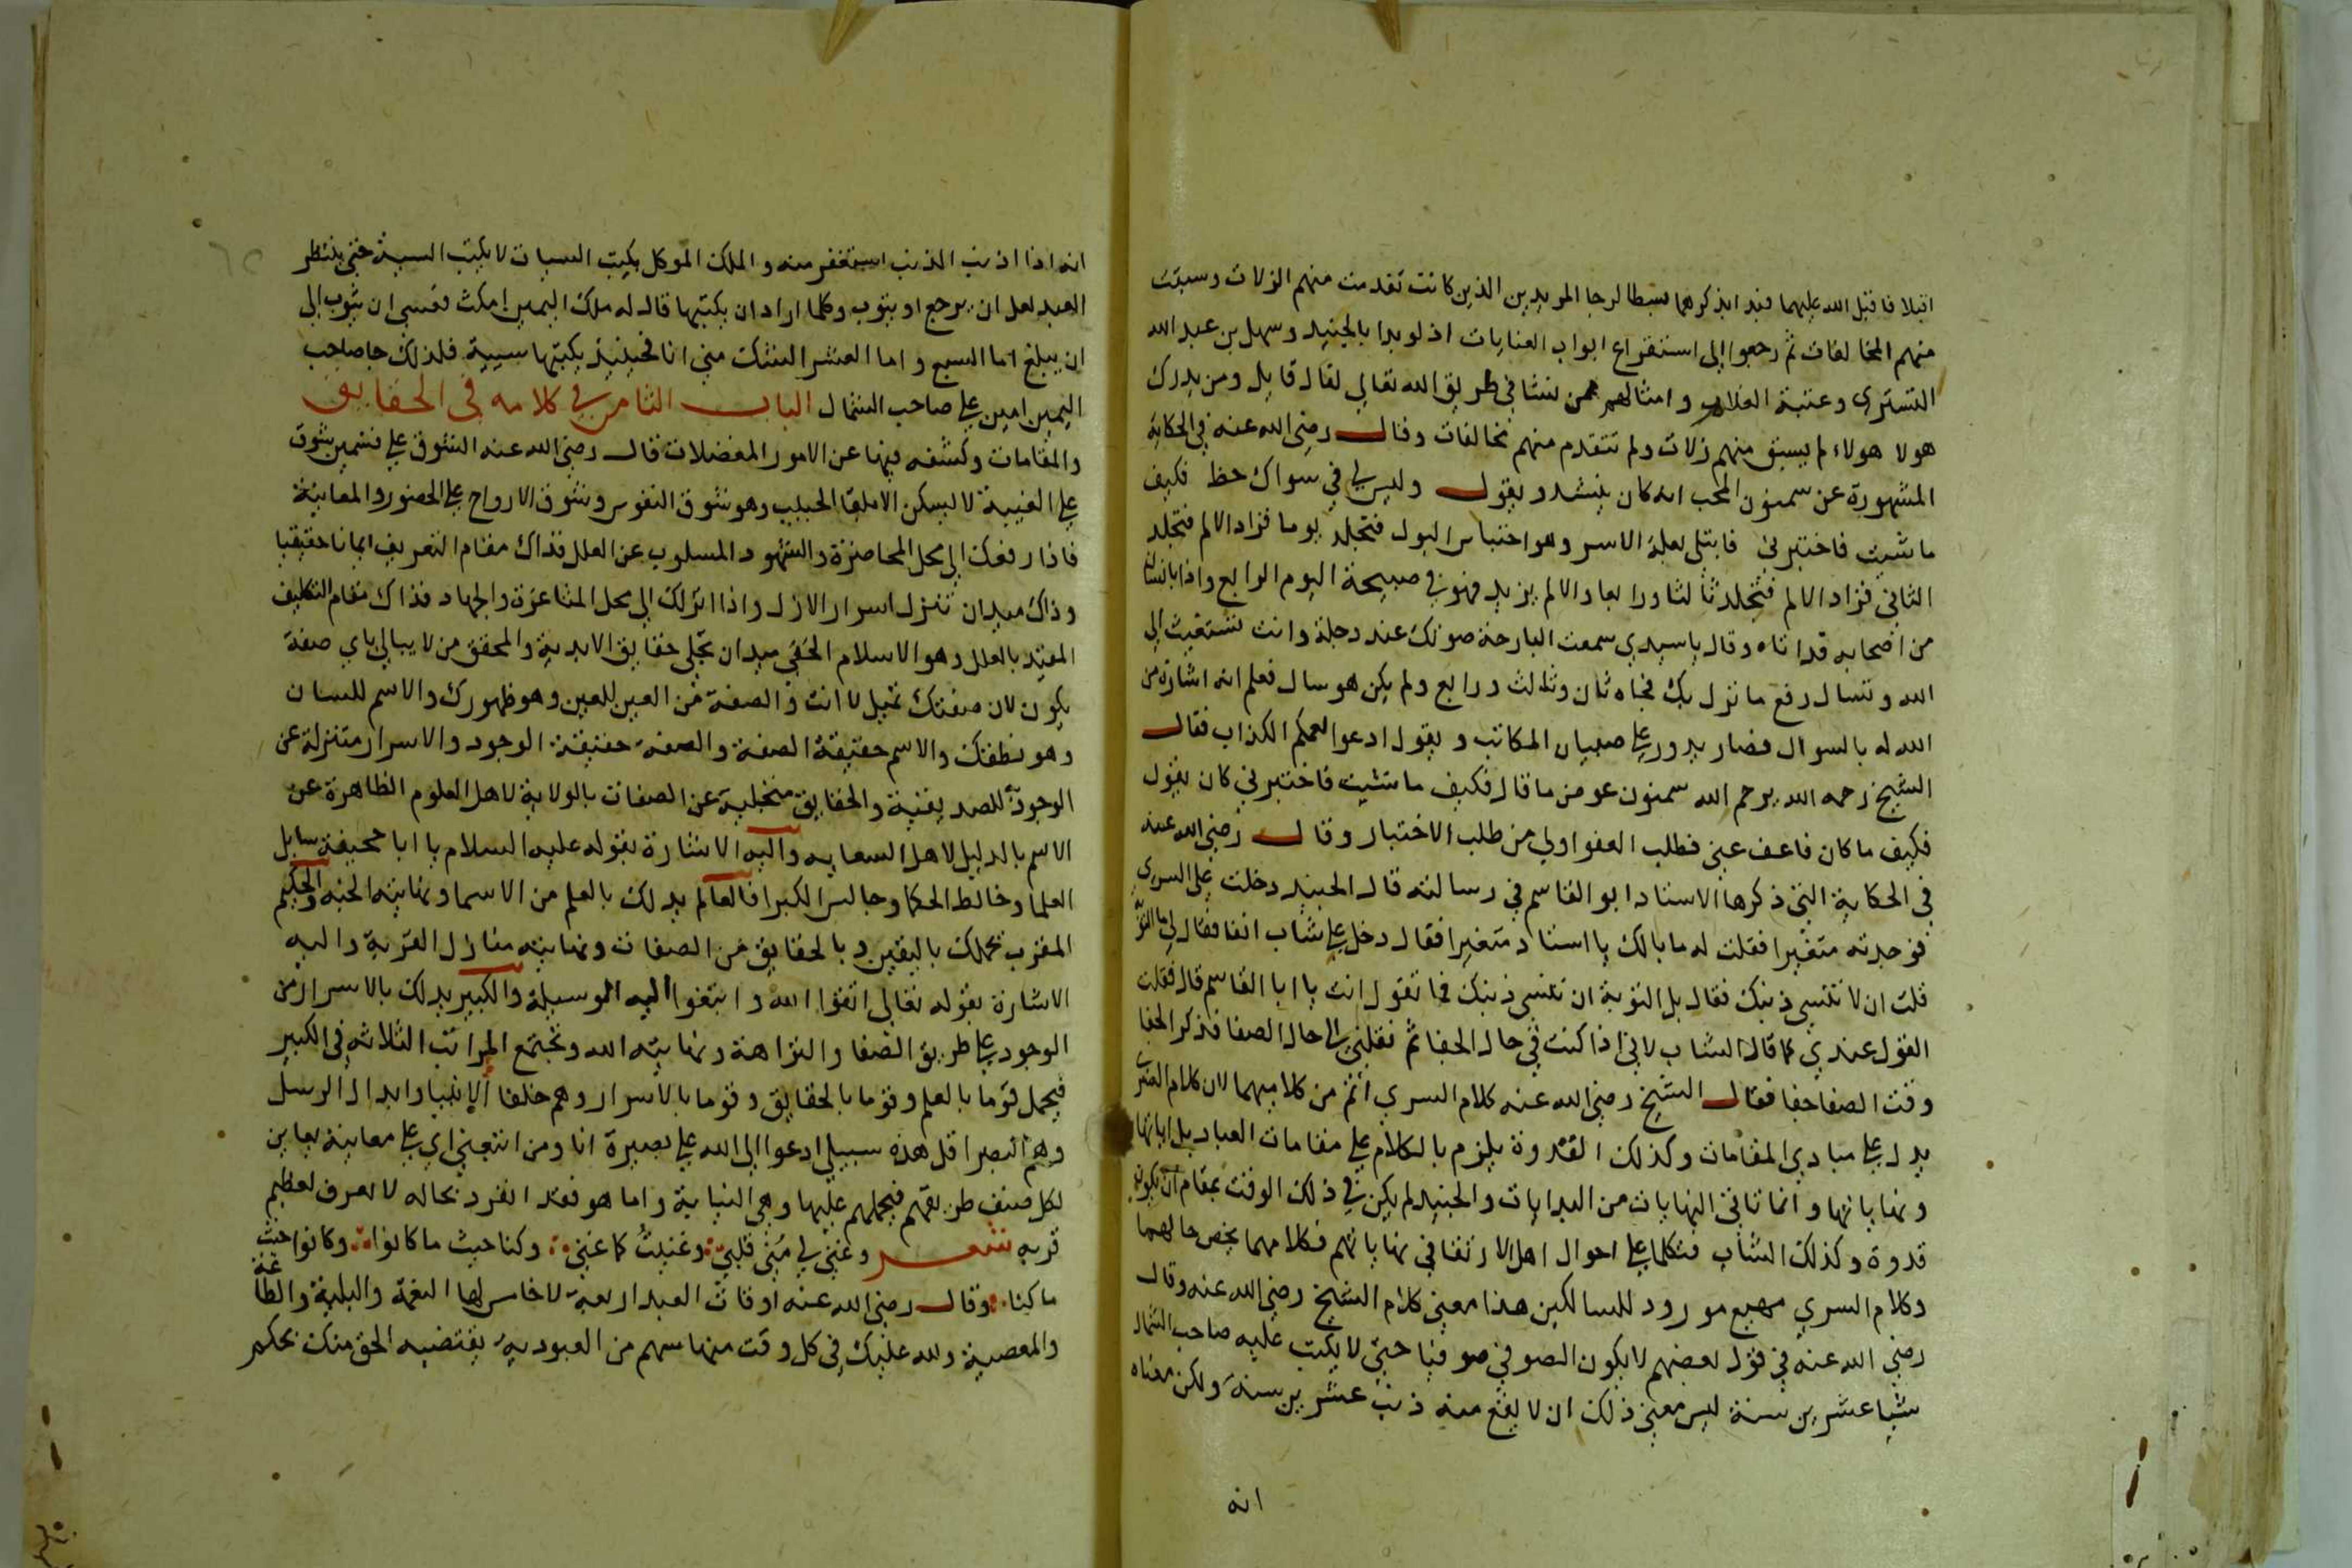 اقبلا فاقبل الله عليهما فبدا بذكرهما بسطا لرجا المريدين الذين كانت تقدمت منهم الزلات وسبقت
منهم المخالفات ثم رجعوا الى استقراع ابواب العنايات اذ لو بدا بالجنيد وسهل بن عبد الله
التستري وعتبة الغلام وامثالهم ممن نشا في طريق الله تعالى لقال قايل ومن يدرك
هولا هولاء لم يسبق منهم زلات ولم تتقدم منهم مخالفات وقال رضي الله عنه في الحكاية
المشهورة عن سمنون المحب انه كان ينشد ويقول وليس لي في سواك حظ فكيف
ما شيت فاختبرني فابتلى بعلة الاسر وهو احتباس البول فتجلد يوما فزاد الالم فتجلد
الثاني فزاد الالم فتجلد ثالثا ورابعا والالم يزيد فهو في صبيحة اليوم الرابع واذا بانسان
من اصحابه قد اتاه وقال يا سيدي سمعت البارحة صوتك عند دجلة وانت تستغيث الى
الله وتسال رفع ما نزل بك فجاه ثان وثالث ورابع ولم يكن هو سال فعلم انه اشارة من
الله له بالسوال فصار يدور على صبيان المكاتب ويقول ادعوا لعمكم الكذاب فقال
الشيخ رحمه الله يرحم الله سمنون عوض ما قال فكيف ما شيت فاختبرني كان يقول
فكيف ما كان فاعف عني فطلب العفو اولى من طلب الاختبار وقال رضي الله عنه
في الحكاية التي ذكرها الاستاد ابو القاسم في رسالته قال الجنيد دخلت على السري
فوجدته متغيرا فقلت له ما بالك يا استاد متغيرا فقال دخل علي شاب انفا فقال لي ما التوبة
قلت ان لا تنسى ذنبك فقال بل التوبة ان تنسى ذنبك فما تقول انت يا ابا القاسم قال فقلت
القول عندي كما قال الشاب لاني اذا كنت في حال الجفا ثم نقلني الى حال الصفا فذكر الجفا
وقت الصفا جفا فقال الشيخ رضي الله عنه كلام السري اتم من كلاميهما لان كلام السري
يدل على مبادي المقامات وكذلك القدوة يلزم بالكلام على مقامات العباد بداياتها
ونهاياتها وانما تاتي النهايات من البدايات والجنيد لم يكن في ذلك الوقت بمقام ان يكون
قدوة وكذلك الشاب فتكلما على احوال اهل الارتقا في نهاياتهم فكلامهما يخص حالهما
وكلام السري مهيع مورود للسالكين هذا معنى كلام الشيخ رضي الله عنه وقال
رضي الله عنه في قول بعضهم لا يكون الصوفي صوفيا حتى لا يكتب عليه صاحب الشمال
شيا عشرين سنة ليس معنى ذلك ان لا يقع منه ذنب عشرين سنة ولكن معناه
انه
انه اذا اذنب الذنب استغفر منه والملك الموكل بكتب السيات لا يكتب السية حتى ينتظر
العبد لعل ان يرجع او يتوب وكلما اراد ان يكتبها قال له ملك اليمين امكث فعسى ان يتوب الى
ان يبلغ اما السبع واما العشر الشك مني انا فحينيذ يكتبها سيية فلذلك جا صاحب
اليمين امين على صاحب الشمال الباب الثامن في كلامه في الحقايق
والمقامات وكشفه فيها عن الامور المعضلات قال رضي الله عنه الشوق على قسمين شوق
على الغيبة لا يسكن الا بلقا الحبيب وهو شوق النفوس وشوق الارواح على الحضور والمعاينة
فاذا رفعك الى محل المحاضرة والشهود المسلوب عن العلل فذاك مقام التعريف ايمانا حقيقيا
وذاك ميدان تنزل اسرار الازل واذا انزلك الى محل المشاعرة والجهاد فذاك مقام التكليف
المقيد بالعلل وهو الاسلام الحقي ميدان تجلي حقايق الابدية والمحقق من لا يبالي باي صفة
يكون لان صفتك تميل لا انت والصفة من العين للعين وهو ظهورك والاسم للسان
وهو نطقك والاسم حقيقة الصفة والصفة حقيقة الوجود والاسرار متنزلة عن
الوجود للصديقية والحقايق متجلية عن الصفات بالولاية لاهل العلوم الظاهرة عن
الاسم بالدليل لاهل السعاية واليه الاشارة بقوله عليه السلام يا ابا جحيفة سايل
العلما وخالط الحكما وجالس الكبرا فالعالم يدلك بالعلم من الاسما ونهايته الجنة والحكيم
المقرب يحملك باليقين وبالحقايق من الصفات ونهايته منازل القربة واليه
الاشارة بقوله تعالى اتقوا الله وابتغوا اليه الوسيلة والكبير يدلك بالاسرار من
الوجود على طريق الصفا والنزاهة ونهايته الله وتجتمع المراتب الثلاثة في الكبير
فيحمل قوما بالعلم وقوما بالحقايق وقوما بالاسرار وهم خلفا الانبيا وابدال الرسل
وهم البصرا قل هذه سبيلي ادعوا الى الله على بصيرة انا ومن اتبعني اي على معاينة يعاين
لكل صنف طريقهم فيحملهم عليها وهي النيابة واما هو فقد انفرد بحاله لا يعرف لعظيم
قربه شعر وغنى لي مني قلبي وغنيت كما غنى وكنا حيث ما كانوا وكانوا حيث
ما كنا وقال رضي الله عنه اوقات العبد اربعة لا خامس لها النعمة والبلية والطاعة
والمعصية ولله عليك في كل وقت منها سهم من العبودية يقتضيه الحق منك بحكم